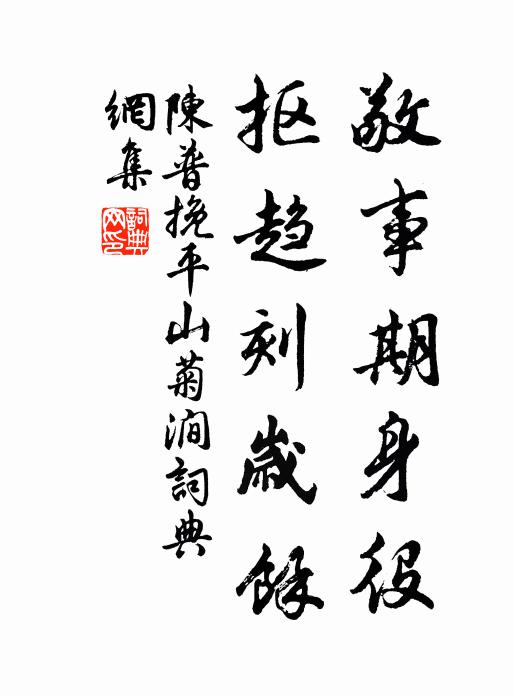 敬事期身役
抠趋刻歲餘
陳普挽平山菊澗詞典
網集
詞典
网印